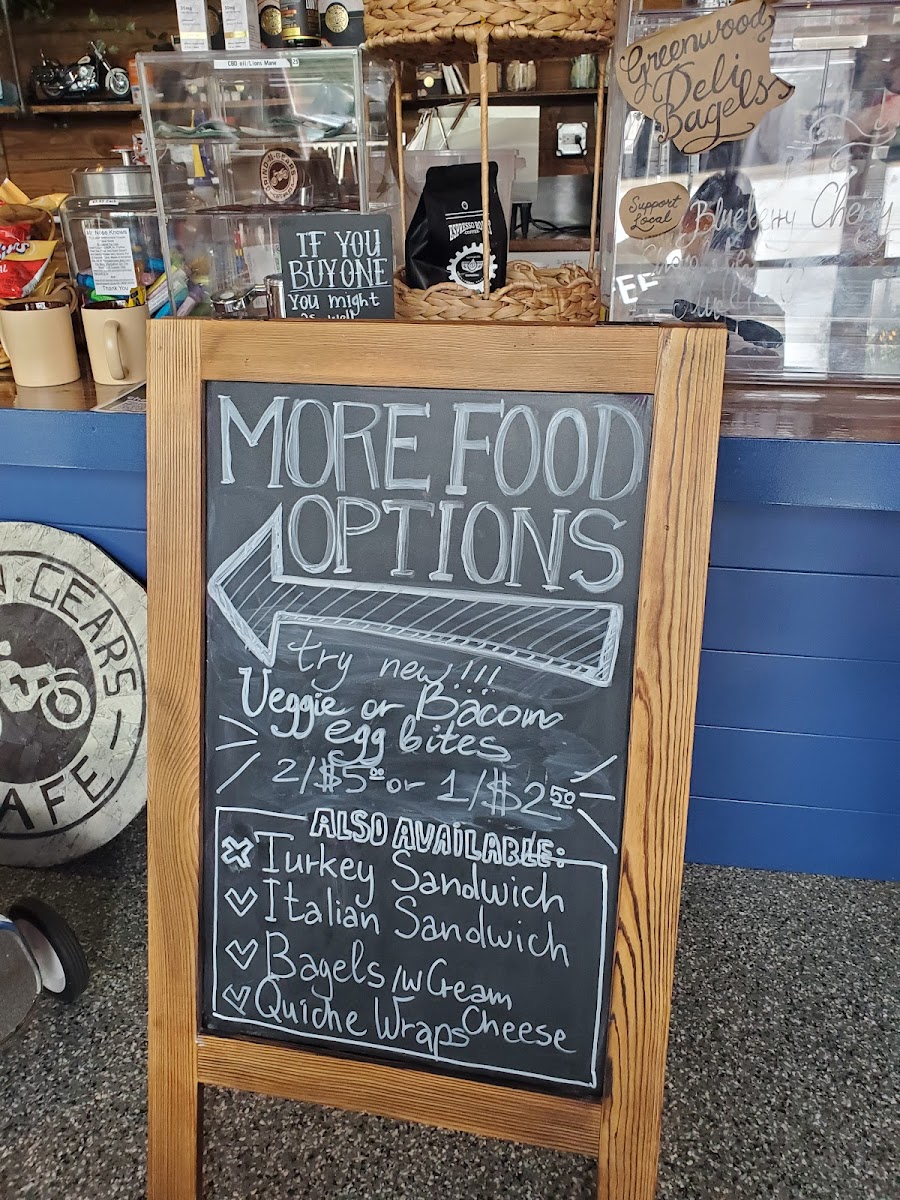 CBD oil/Lions Mane
Greenwood
Deli
Bagels
Support
Local
Blueberry Cherry
Thank You
ESPRESSO
IF YOU
BUY ONE
You might
as well
MORE FOOD
OPTIONS
try new!!!
Veggie or Bacon
egg bites
2/$5.00 or 1/$2.50
ALSO AVAILABLE:
Turkey Sandwich
Italian Sandwich
Bagels /w Cream
Cheese
Quiche Wraps
GEARS